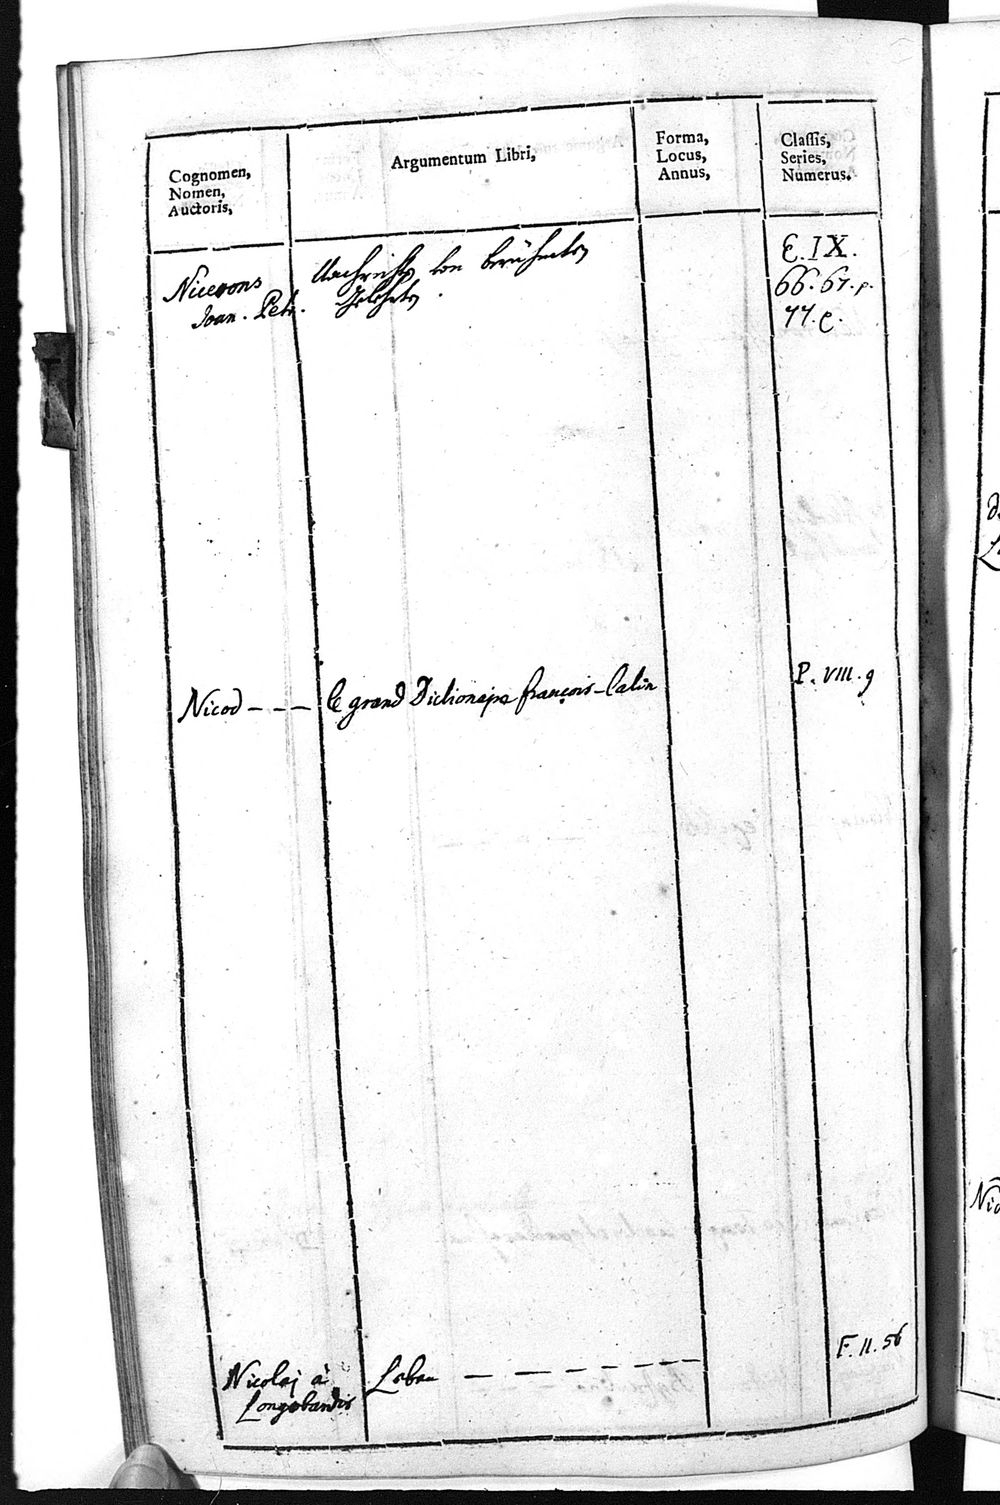 Cognomen,
Nomen,
Auctoris,
Argumentum Libri,
Forma,
Locus,
Annus,
Classis,
Series,
Numerus.
Nicerons
Joan. Petr.
Nachrichten von berühmten
Gelehrten.
E. IX.
66. 67. p.
77. e.
Nicod - - -
le grand Dictionaire françois-latin
P. VIII. 9
Nicolaj à
Longobardis
Leben - - - - - - -
F. II. 56